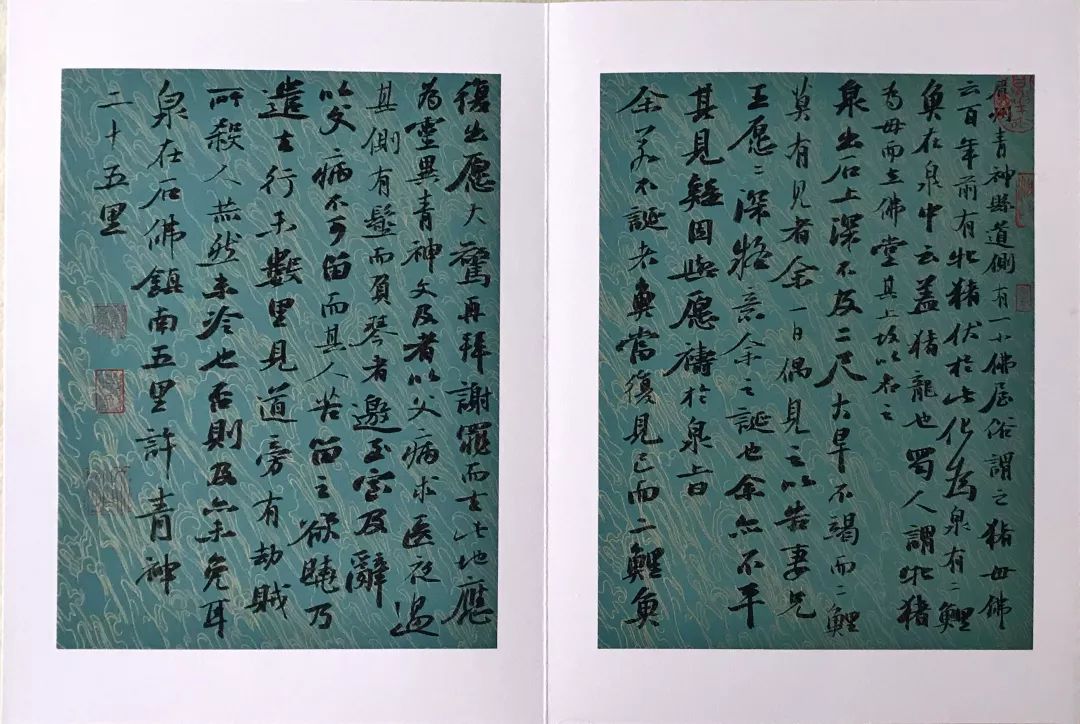 眉州青神縣道側有一小佛屋俗謂之猪母佛
云百年前有牝猪伏於此化為泉有二鯉
魚在泉中云蓋猪龍也蜀人謂牝猪
為母而立佛堂其上故以名之
泉出石上深不及二尺大旱不竭而二鯉
莫有見者余一日偶見之以告妻兄
王愿〻深疑意余之誕也余亦不平
其見疑因與愿禱於泉上曰
余若不誕者魚當復見已而二鯉魚
復出愿大驚再拜謝罪而去此地應
為靈異青神文及者以父病求医夜過
其側有髯而負琴者邀至室及辭
以父病不可留而其人苦留之欲曉乃
遣去行未數里見道旁有劫賊
所殺人赫然未冷也否則及亦未免耳
泉在石佛鎮南五里許青神
二十五里